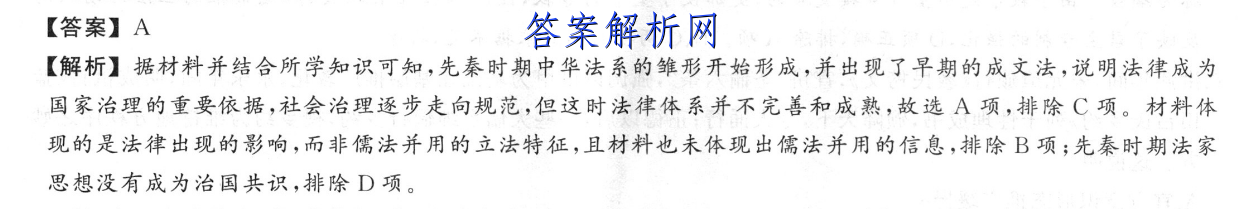 【答案】A
答案解析网
【解析】据材料并结合所学知识可知,先秦时期中华法系的雏形开始形成,并出现了早期的成文法,说明法律成为
国家治理的重要依据,社会治理逐步走向规范,但这时法律体系并不完善和成熟,故选 A 项,排除 C 项。材料体
现的是法律出现的影响,而非儒法并用的立法特征,且材料也未体现出儒法并用的信息,排除 B 项;先秦时期法家
思想没有成为治国共识,排除 D 项。